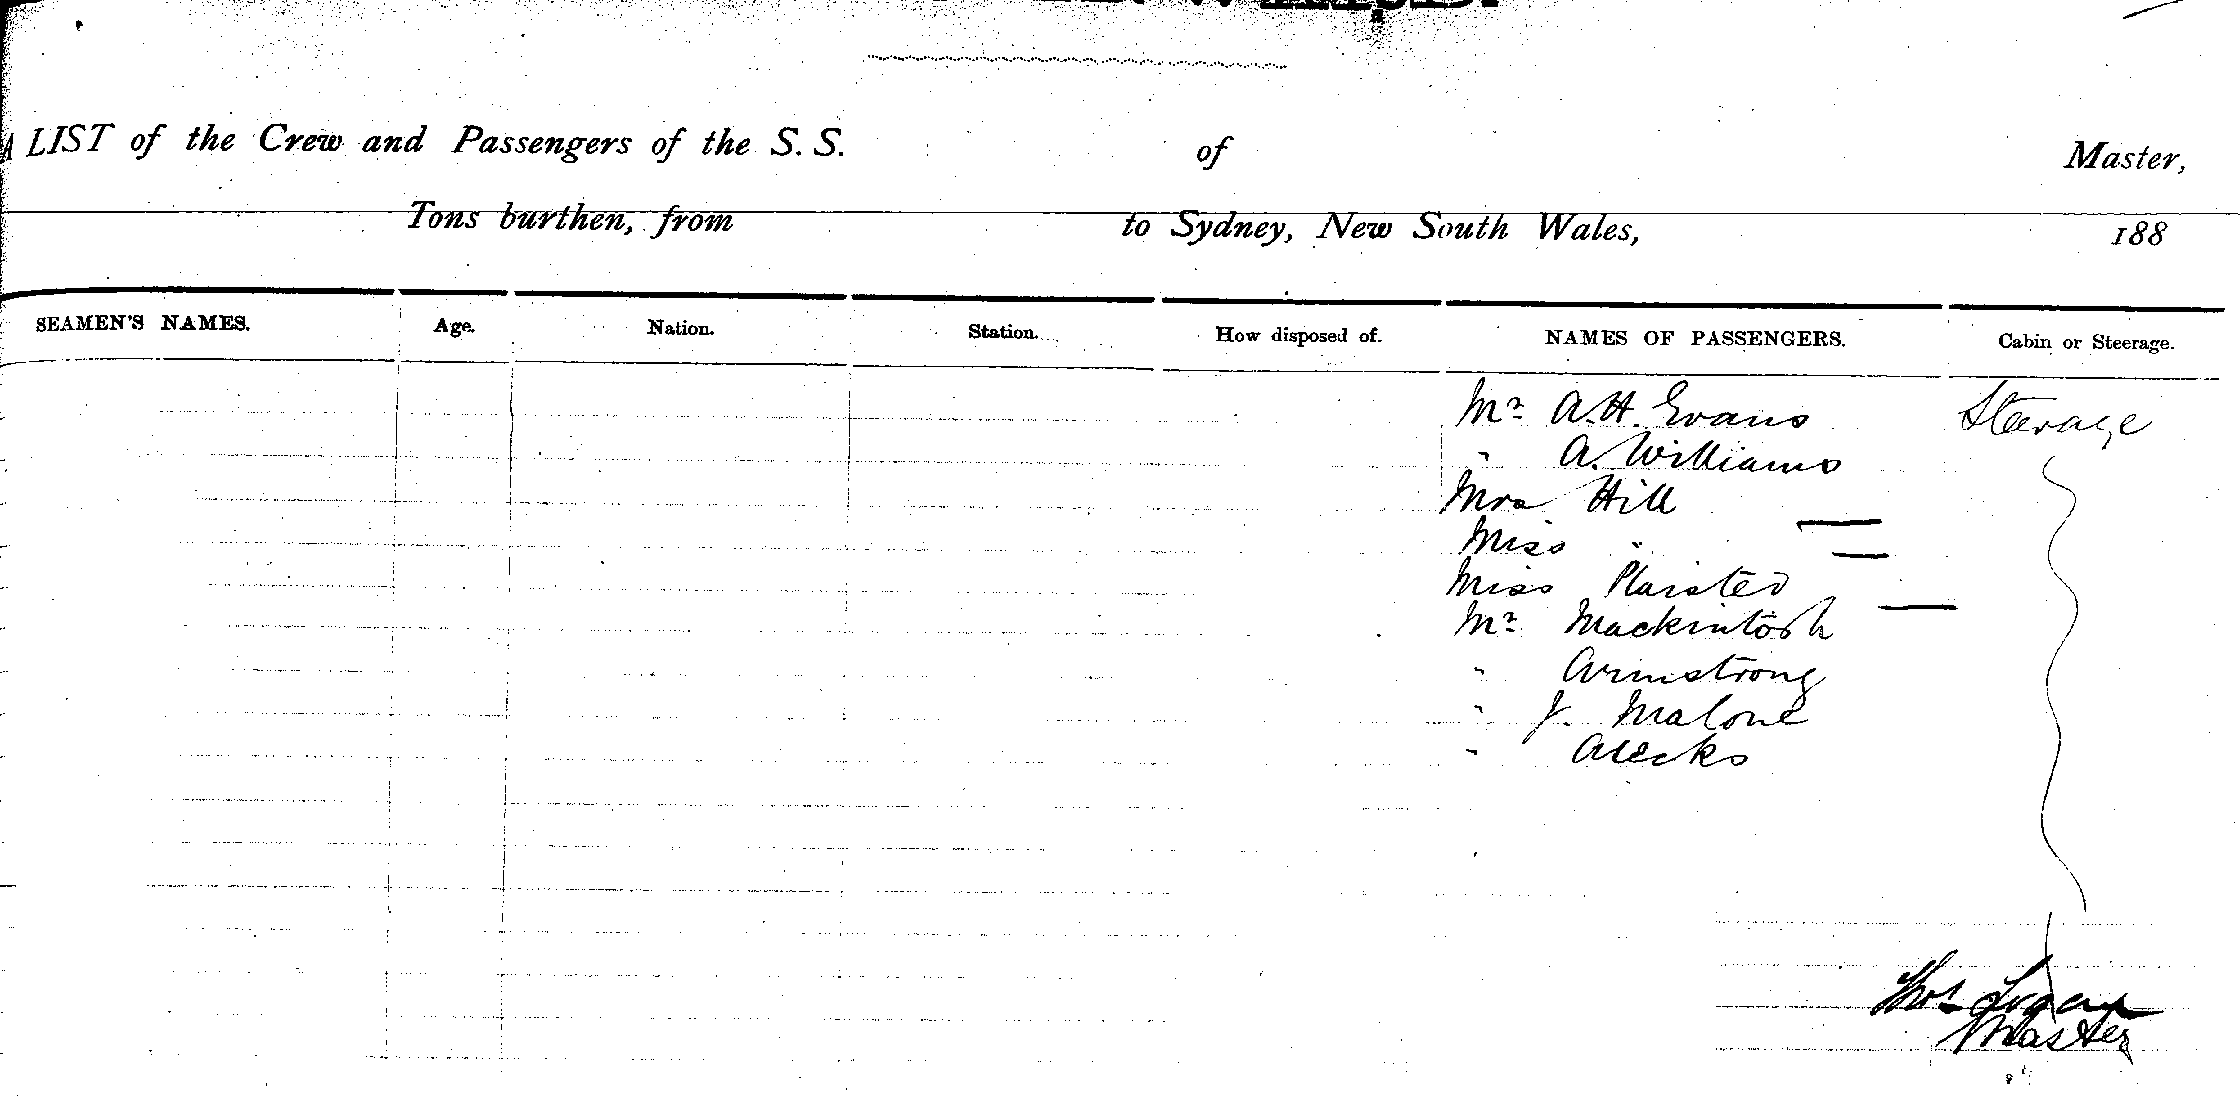 A LIST of the Crew and Passengers of the S. S. of Master,
Tons burthen, from to Sydney, New South Wales, 188
SEAMEN'S NAMES. Age. Nation. Station. How disposed of. NAMES OF PASSENGERS. Cabin or Steerage.
Mr A. H. Evans Steerage
" A. Williams
Mrs Hill
Miss "
Miss Plaisted
Mr Mackintosh
" Armstrong
" J. Malone
"
Thos Logan
Master